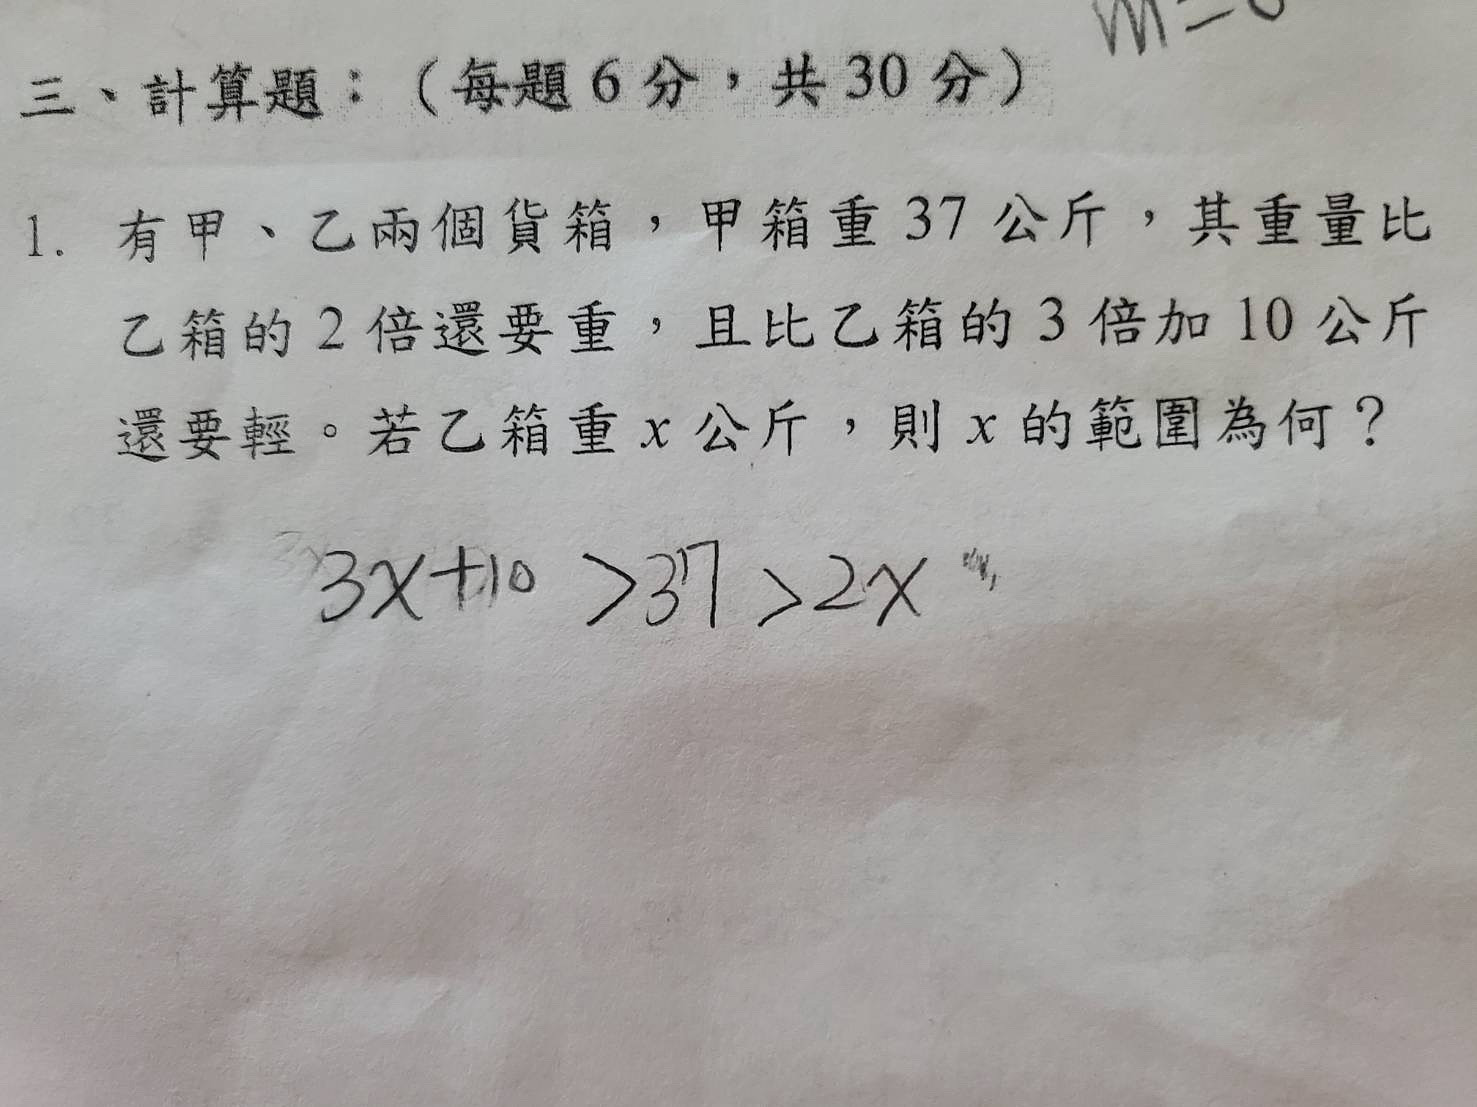 三、計算題：（每題 6 分，共 30 分）
1. 有甲、乙兩個貨箱，甲箱重 37 公斤，其重量比
乙箱的 2 倍還要重，且比乙箱的 3 倍加 10 公斤
還要輕。若乙箱重 x 公斤，則 x 的範圍為何？
3x+10 >37 >2x